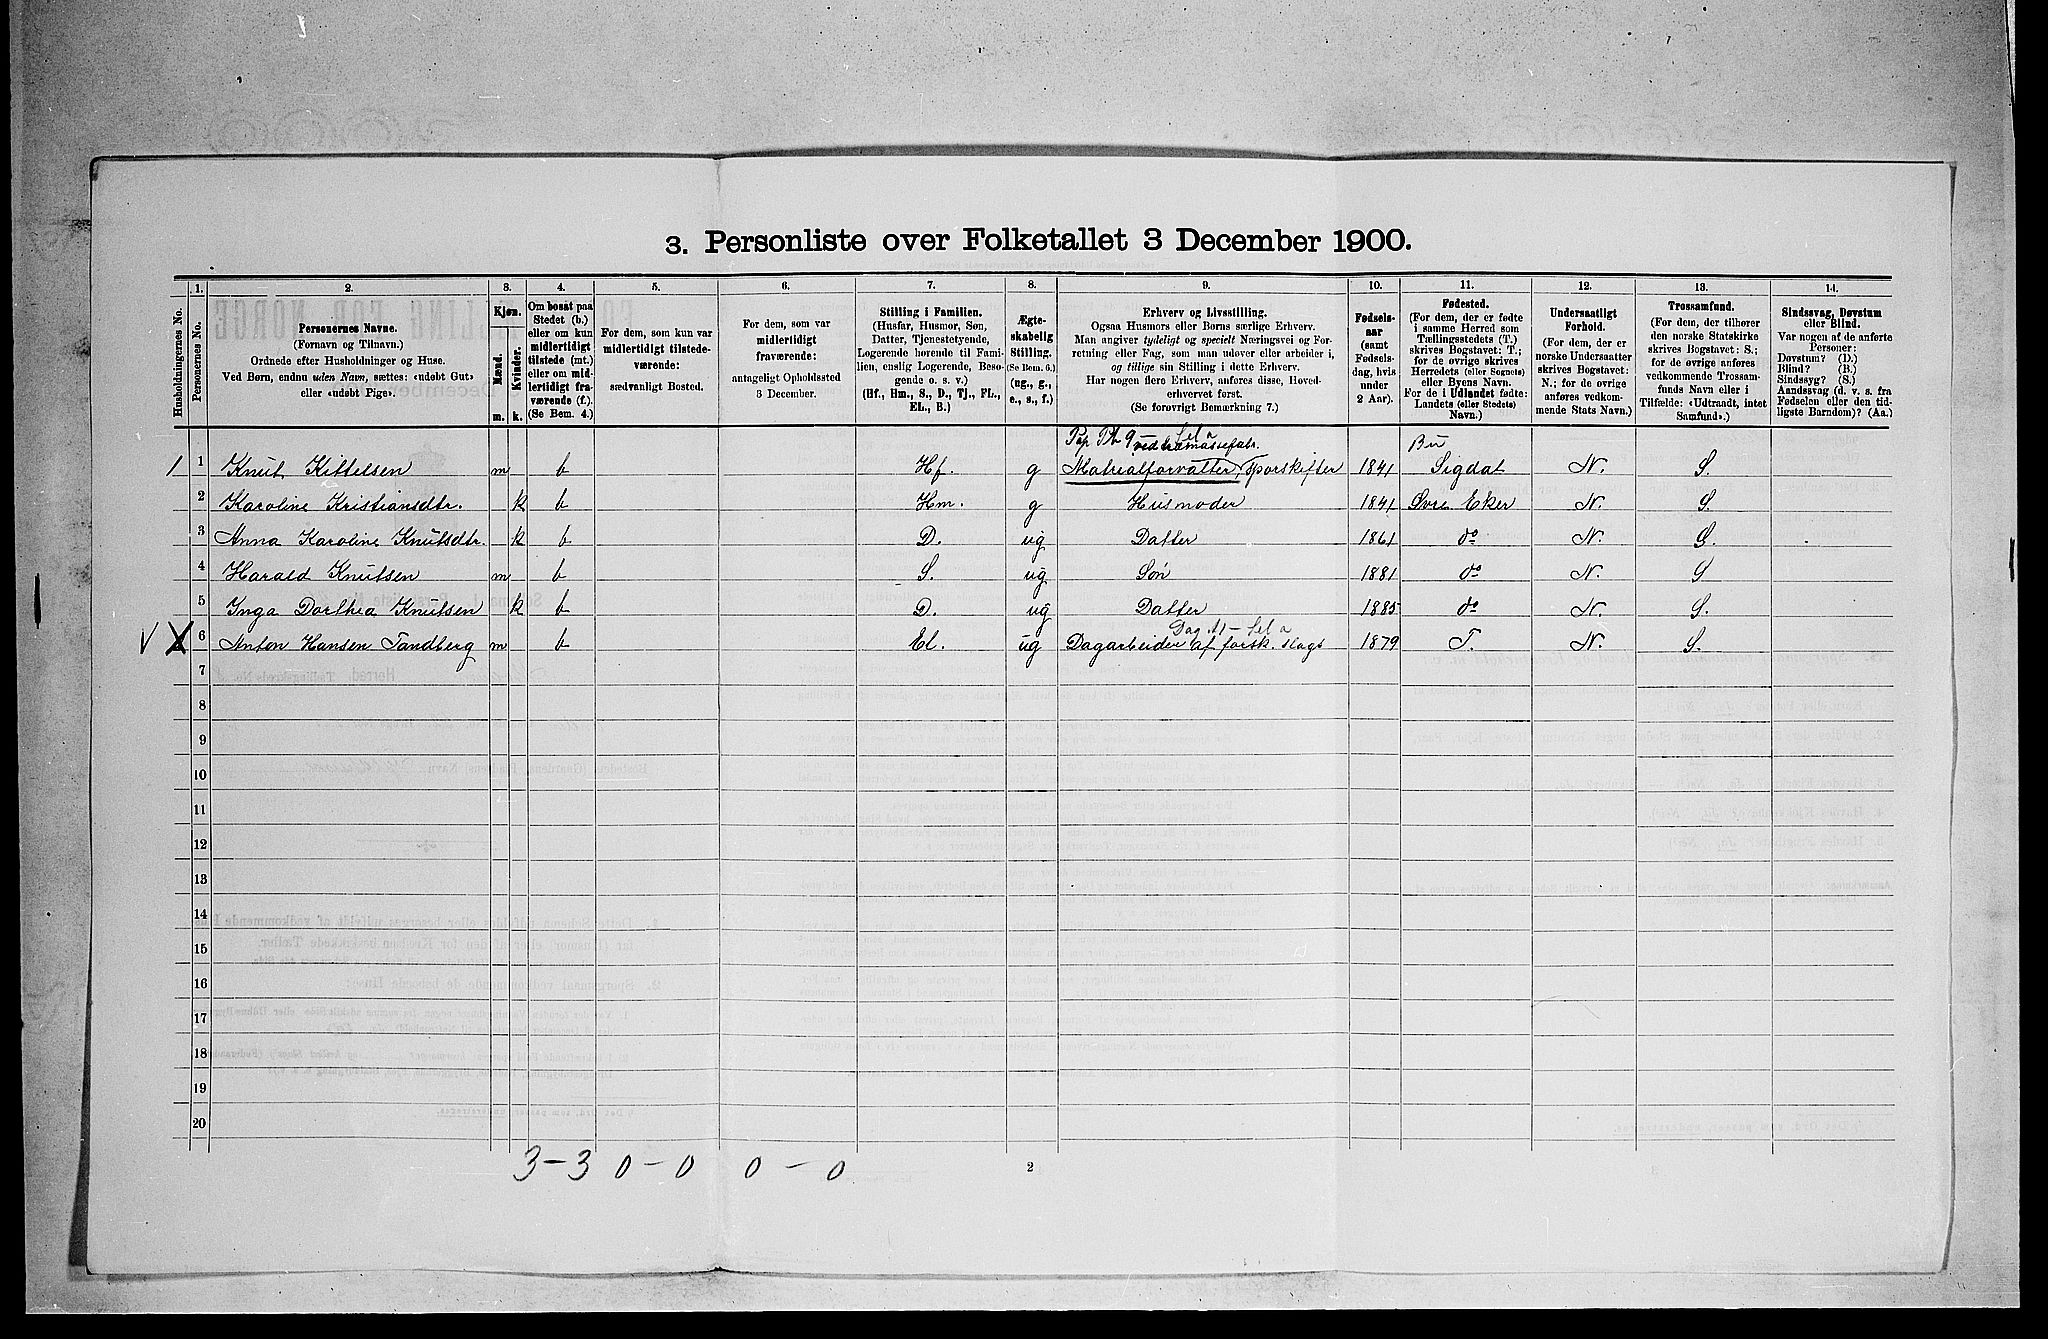 3. Personliste over Folketallet 3 December 1900.
1. 2. 3. 4. 5. 6. 7. 8. 9. 10. 11. 12. 13. 14.
Husholdningernes No.
Personernes No.
Personernes Navne.
(Fornavn og Tilnavn.)
Ordnede efter Husholdninger og Huse.
Ved Børn, endnu uden Navn, sættes: «udøbt Gut»
eller «udøbt Pige».
Kjøn.
Mænd.
Kvinder.
m. k.
Om bosat paa
Stedet (b.)
eller om kun
midlertidigt
tilstede (mt.)
eller om mid-
lertidigt fra-
værende (f.).
(Se Bem. 4.)
For dem, som kun var
midlertidigt tilstede-
værende:
sædvanligt Bosted.
For dem, som var
midlertidigt
fraværende:
antageligt Opholdssted
3 December.
Stilling i Familien.
(Husfar, Husmor, Søn,
Datter, Tjenestetyende,
Logerende hørende til Fami-
lien, enslig Logerende, Besø-
gende o. s. v.)
(Hf., Hm., S., D., Tj., FL.,
EL., B.)
Ægte-
skabelig
Stilling.
(Se Bem. 6.)
(ug., g.,
e., s., f.)
Erhverv og Livsstilling.
Ogsaa Husmors eller Børns særlige Erhverv.
Man angiver tydeligt og specielt Næringsvei og For-
retning eller Fag, som man udøver eller arbeider i,
og tillige sin Stilling i dette Erhverv.
Har nogen flere Erhverv, anføres disse, Hoved-
erhvervet først.
(Se forøvrigt Bemærkning 7.)
Fødsels-
aar
(samt
Fødsels-
dag, hvis
under
2 Aar).
Fødested.
(For dem, der er fødte
i samme Herred som
Tællingsstedets (T.)
skrives Bogstavet: T.;
for de øvrige skrives
Herredets (eller Sognets)
eller Byens Navn.
For de i Udlandet fødte:
Landets (eller Stedets)
Navn.)
Undersaatligt
Forhold.
(For dem, der er
norske Undersaatter
skrives Bogstavet:
N.; for de øvrige
anføres vedkom-
mende Stats Navn.)
Trossamfund.
(For dem, der tilhører
den norske Statskirke
skrives Bogstavet: S.;
for de øvrige anføres
vedkommende Trossam-
funds Navn eller i
Tilfælde: «Udtraadt, intet
Samfund».)
Sindssvag, Døvstum
eller Blind.
Var nogen af de anførte
Personer:
Døvstum? (D.)
Blind? (B.)
Sindssyg? (S.)
Aandssvag (d. v. s. fra
Fødselen eller den tid-
ligste Barndom)? (Aa.)
Pap. Bu
1 1 Knut Kittelsen m b Hf. g Matrialforvalter, Sporskifter 1841 Sigdal N. S.
2 Karoline Kristiansdtr. k b Hm. g Husmoder 1841 Øvre Eker N. S.
3 Anna Karoline Knutsdtr. k b D. ug Datter 1861 do N. S.
4 Harald Knutsen m b S. ug Søn 1881 do N. S
5 Inga Dorthea Knutsen k b D. ug Datter 1885 do N. S.
6 Anton Hansen Tandberg m b El. ug Dagarbeider af forsk. slags 1879 T. N. S.
7
8
9
10
11
12
13
14
15
16
17
18
19
20
3 – 3 0 – 0 0 – 0
2